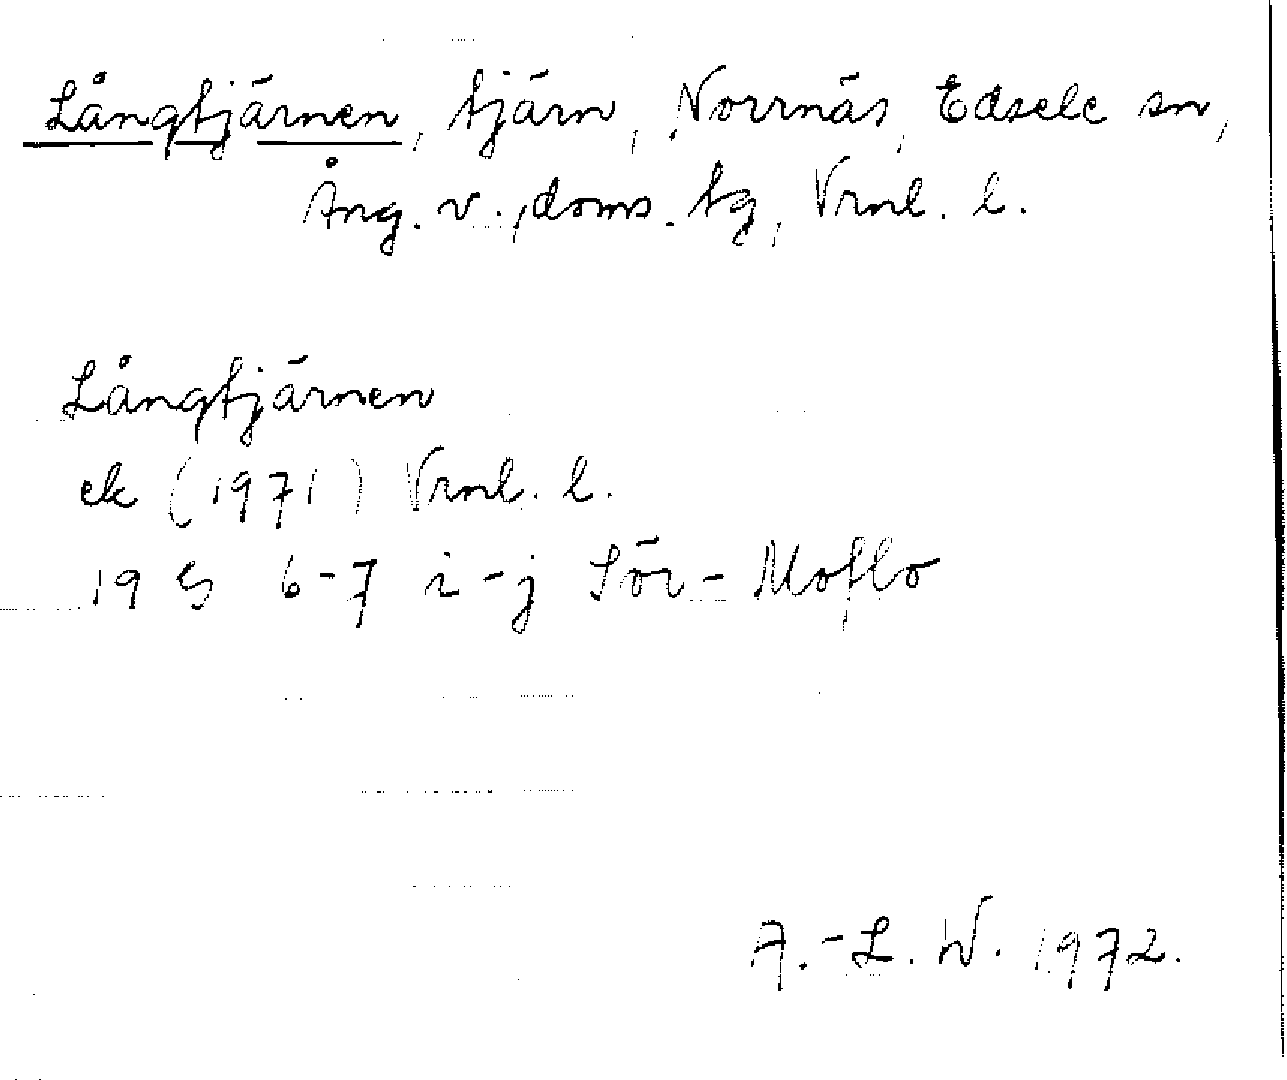 Långtjärnen, tjärn, Norrnäs, Edsele sn,
Ång. v., doms. tg, Vrnl. l.
Långtjärnen
ek (1971) Vrnl. l.
19 G 6-7 i-j Sör-Moflo
A.-L. W. 1972.